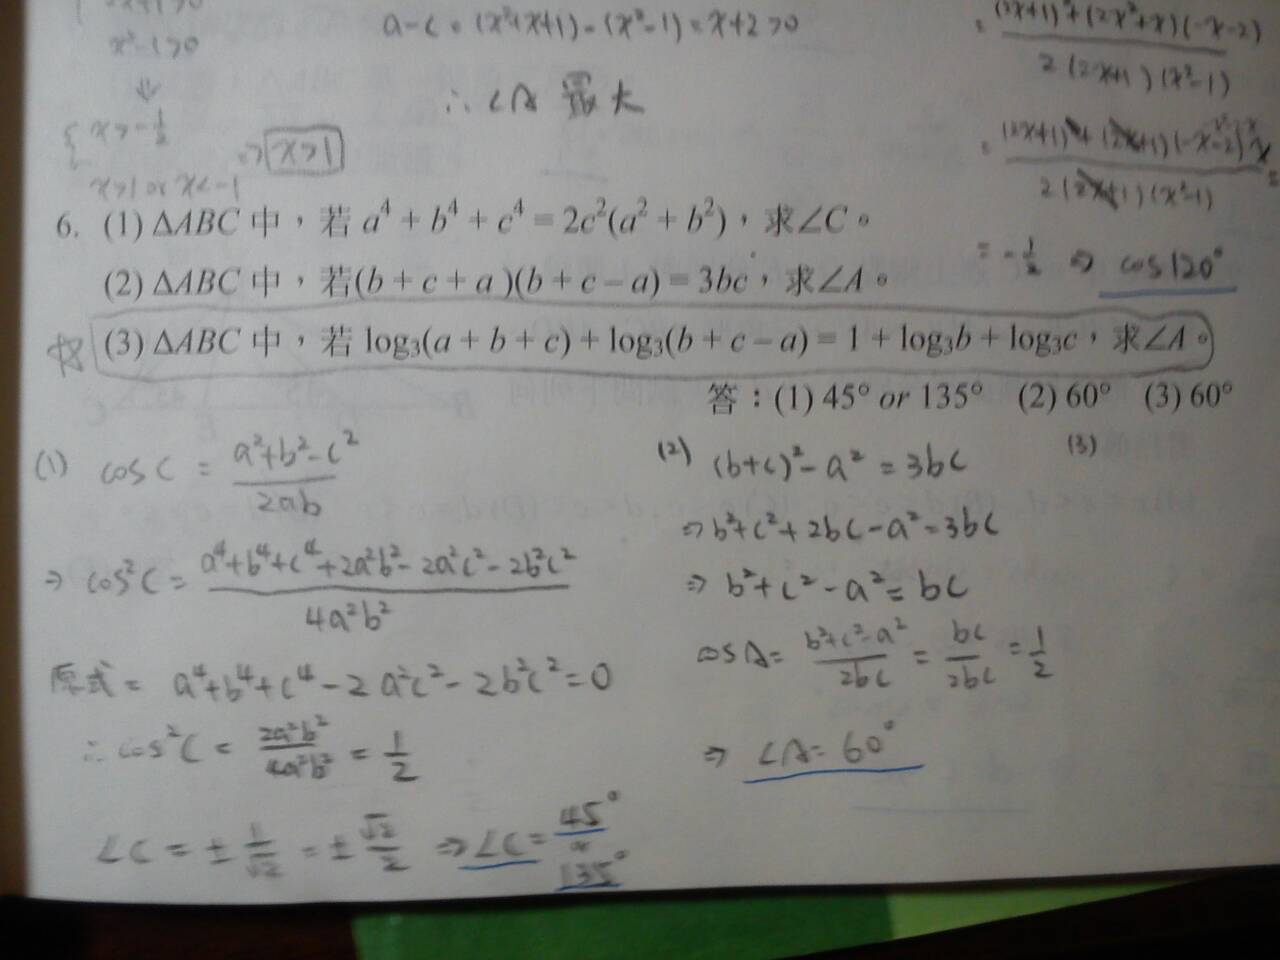 x²-1>0
a-c = (x²+x+1) - (x²-1) = x+2 >0
∴ ∠A 最大
{ x>-1/2
x>1 or x<-1
=> x>1
= (2x+1)²+(2x²+x)(-x-2) / 2(2x+1)(x²-1)
2(2x+1)(x²-1)
= -1/2 => cos120°
6. (1) ΔABC 中,若 a⁴ + b⁴ + c⁴ = 2c²(a² + b²),求∠C。
(2) ΔABC 中,若(b + c + a )(b + c – a) = 3bc,求∠A。
(3) ΔABC 中,若 log₃(a + b + c) + log₃(b + c – a) = 1 + log₃b + log₃c,求∠A。
答:(1) 45° or 135° (2) 60° (3) 60°
(1) cosC = a²+b²-c² / 2ab
=> cos²C = a⁴+b⁴+c⁴+2a²b²-2a²c²-2b²c² / 4a²b²
原式= a⁴+b⁴+c⁴-2a²c²-2b²c²=0
∴ cos²C = 2a²b² / 4a²b² = 1/2
∠C = ± 1/√2 = ± √2/2 => ∠C = 45° or 135°
(2) (b+c)²-a² = 3bc
=> b²+c²+2bc-a²=3bc
=> b²+c²-a²= bc
cosA= b²+c²-a² / 2bc = bc / 2bc = 1/2
=> ∠A= 60°
(3)